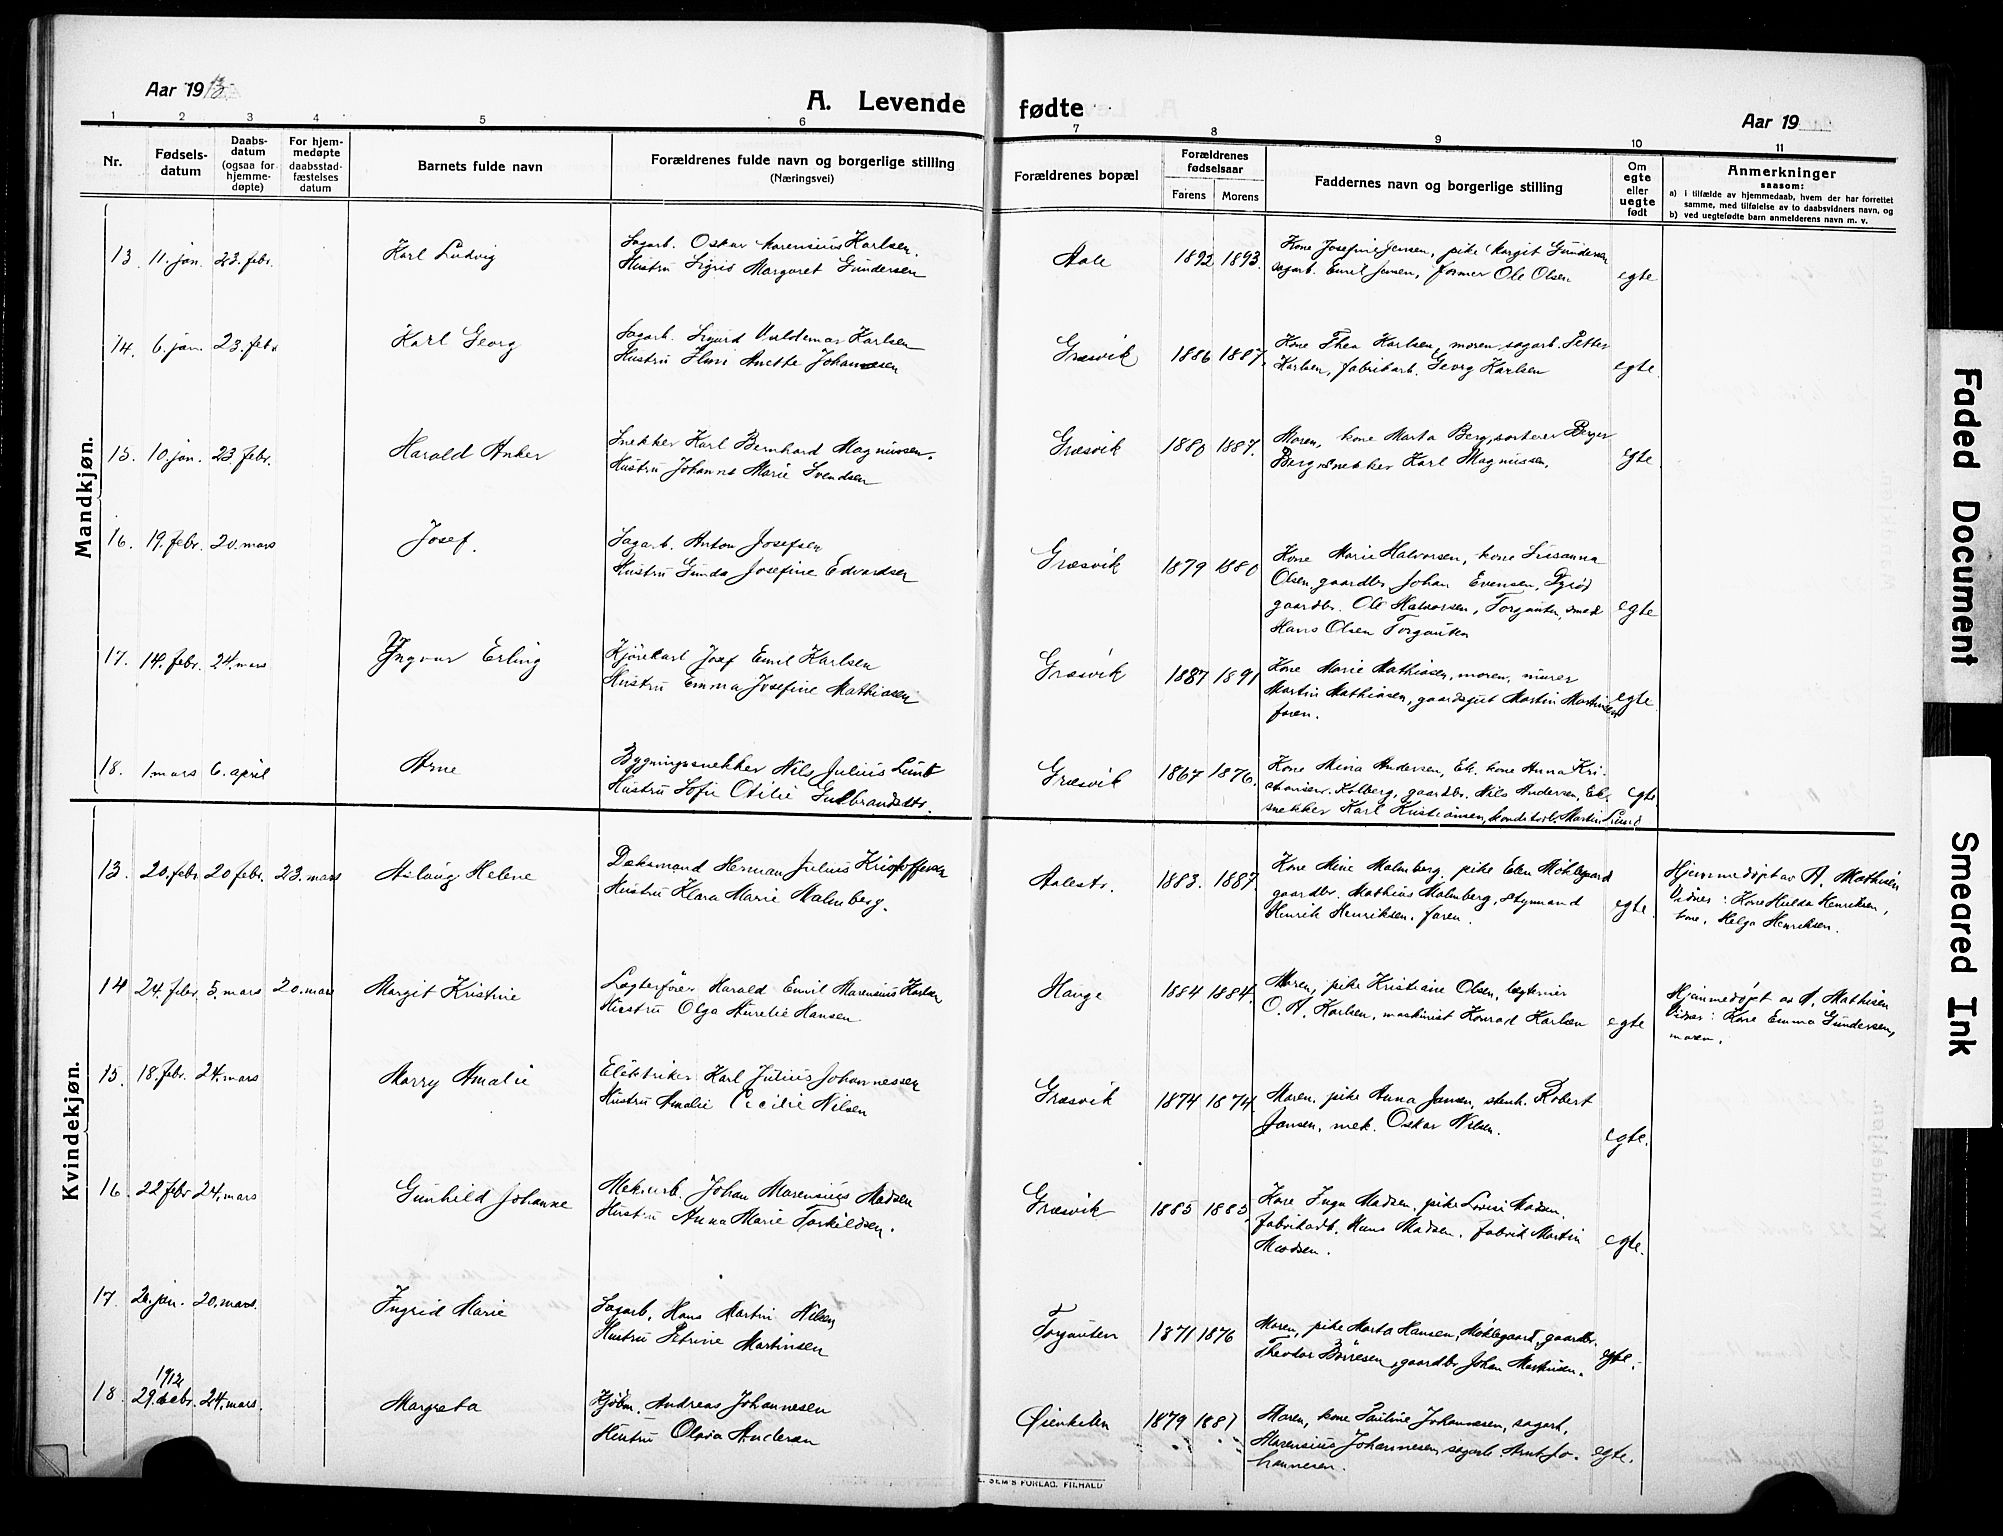 Aar 1913
A. Levende fødte
Aar 19
1 2 3 4 5 6 7 8 9 10 11
Nr.
Fødselsdatum
Daabsdatum (ogsaa for hjemmedøpte)
For hjemmedøpte daabsstadfæstelses datum
Barnets fulde navn
Forældrenes fulde navn og borgerlige stilling
(Næringsvei)
Forældrenes bopæl
Forældrenes fødselsaar
Farens Morens
Faddernes navn og borgerlige stilling
Om egte eller uegte født
Anmerkninger
saasom:
a) i tilfælde av hjemmedaab, hvem der har forrettet
samme, med tilføielse av to daabsvidners navn, og
b) ved uegtefødte barn anmelderens navn m. v.
Mandkjøn.
13. 11. jan. 23. febr. Karl Ludvig
Sagarb. Oskar Marensius Karlsen.
Hustru Sigrid Margaret Gundersen
Aale 1892 1893.
Kone Josefine Jensen, pike Margit Gundersen
sagarb. Emil Jensen, former Ole Olsen
egte
14. 6. jan. 23. febr Karl Georg
Sagarb. Sigurd Valdemar Karlsen
Hustru Anette Johannesen
Græsvik 1886 1887.
Kone Thea Karlsen, moren, sagarb. Petter
Karlsen, fabrikarb. Georg Karlsen
egte.
15. 10. jan. 23. febr. Harald Anker
Snekker Karl Bernhard Magnussen.
Hustru Johanne Marie Svendsen
Græsvik 1880 1887.
Moren, kone Marta Berg, sorterer Berger
Berg, snekker Karl Magnussen.
egte.
16. 19. febr. 20. mars Josef.
Sagarb. Anton Josefsen
Hustru Gunda Josefine Edvardsen
Græsvik 1879 1880
Kone Marie Halvorsen, kone Susanna
Olsen, gaardbr. Johan Evensen,
gaardbr. Ole Halvorsen, Torgauten, smed
Hans Olsen Torgauten
egte
17. 14. febr. 24. mars Yngvar Erling
Kjørekarl Josef Emil Karlsen
Hustru Emma Josefine Mathiasen
Græsvik 1887 1891
Kone Marie Mathiasen, moren, murer
Martin Mathiasen, gaardsgut Martin Martinsen
faren.
egte.
18. 1 mars 6. april Arne
Bygningssnekker Nils Julius Lund
Hustru Sofie Otilie Gulbrandsdtr.
Græsvik 1867 1876.
Kone Mina Andersen, Ek. kone Anna Kri-
stiansen, Kolberg, gaardbr. Nils Andersen, Ek.
snekker Karl Kristiansen, Martin Lund
egte
Kvindekjøn.
13. 20. febr. 20 febr. 23. mars Aslaug Helene
Dæksmand Herman Julius Kristoffersen
Hustru Klara Marie Malmberg.
Aalestr. 1883. 1887.
Kone Mine Malmberg, pike Elen Møklegaard
gaardbr. Mathias Malmberg, styrmand
Henrik Henriksen, faren.
egte.
Hjemmedøpt av A. Mathisen
Vidner: Kone Hulda Henriksen,
kone, Helga Henriksen.
14 24. febr. 5. mars 20. mars Margit Kristine
Lægterfører Harald Emil Marensius Karlsen
Hustru Olga Aurelie Hansen
Hauge 1884 1884.
Moren, pike Kristiane Olsen, lægtereier
O. A. Karlsen, maskinist Konrad Karlsen
egte
Hjemmedøpt av A. Mathisen
Vidner: Kone Emma Gundersen,
moren.
15. 18. febr. 24. mars Marry Amalie
Elektriker Karl Julius Johannessen
Hustru Amalie Cecilie Nilsen
Græsvik 1874 1874.
Moren, pike Anna Jansen, stenh. Robert
Jansen, mek. Oskar Nilsen.
egte.
16. 22 febr 24. mars Gunhild Johanne
Mek. arb. Johan Marensius Madsen
Hustru Anna Marie Torkildsen.
Græsvik 1885 1885
Kone Inga Madsen, pike Lovise Madsen,
fabrikarb. Hans Madsen, fabrik Martin
Madsen.
egte.
17. jan. 20. mars. Ingrid Marie
Sagarb. Hans Martin Nilsen
Hustru Petrine Martinsen
Torgauten 1871 1876
Moren, pike Marta Hansen, Møklegaard, gaardbr.
Theodor Børresen, gaardbr. Johan Martinsen.
egte.
18. 1912 29. 24. mars. Margreta
Kjøbm. Andreas Johannesen
Hustru Olava Andersen
Øienkilen 1879 1881
Moren, kone Pauline Johannesen, sagarb.
Marensius Johannesen, sagarb. Arnt Jo-
hannesen.
egte.
SEM'S FORLAG. F.HALD
Faded Document
Smeared Ink